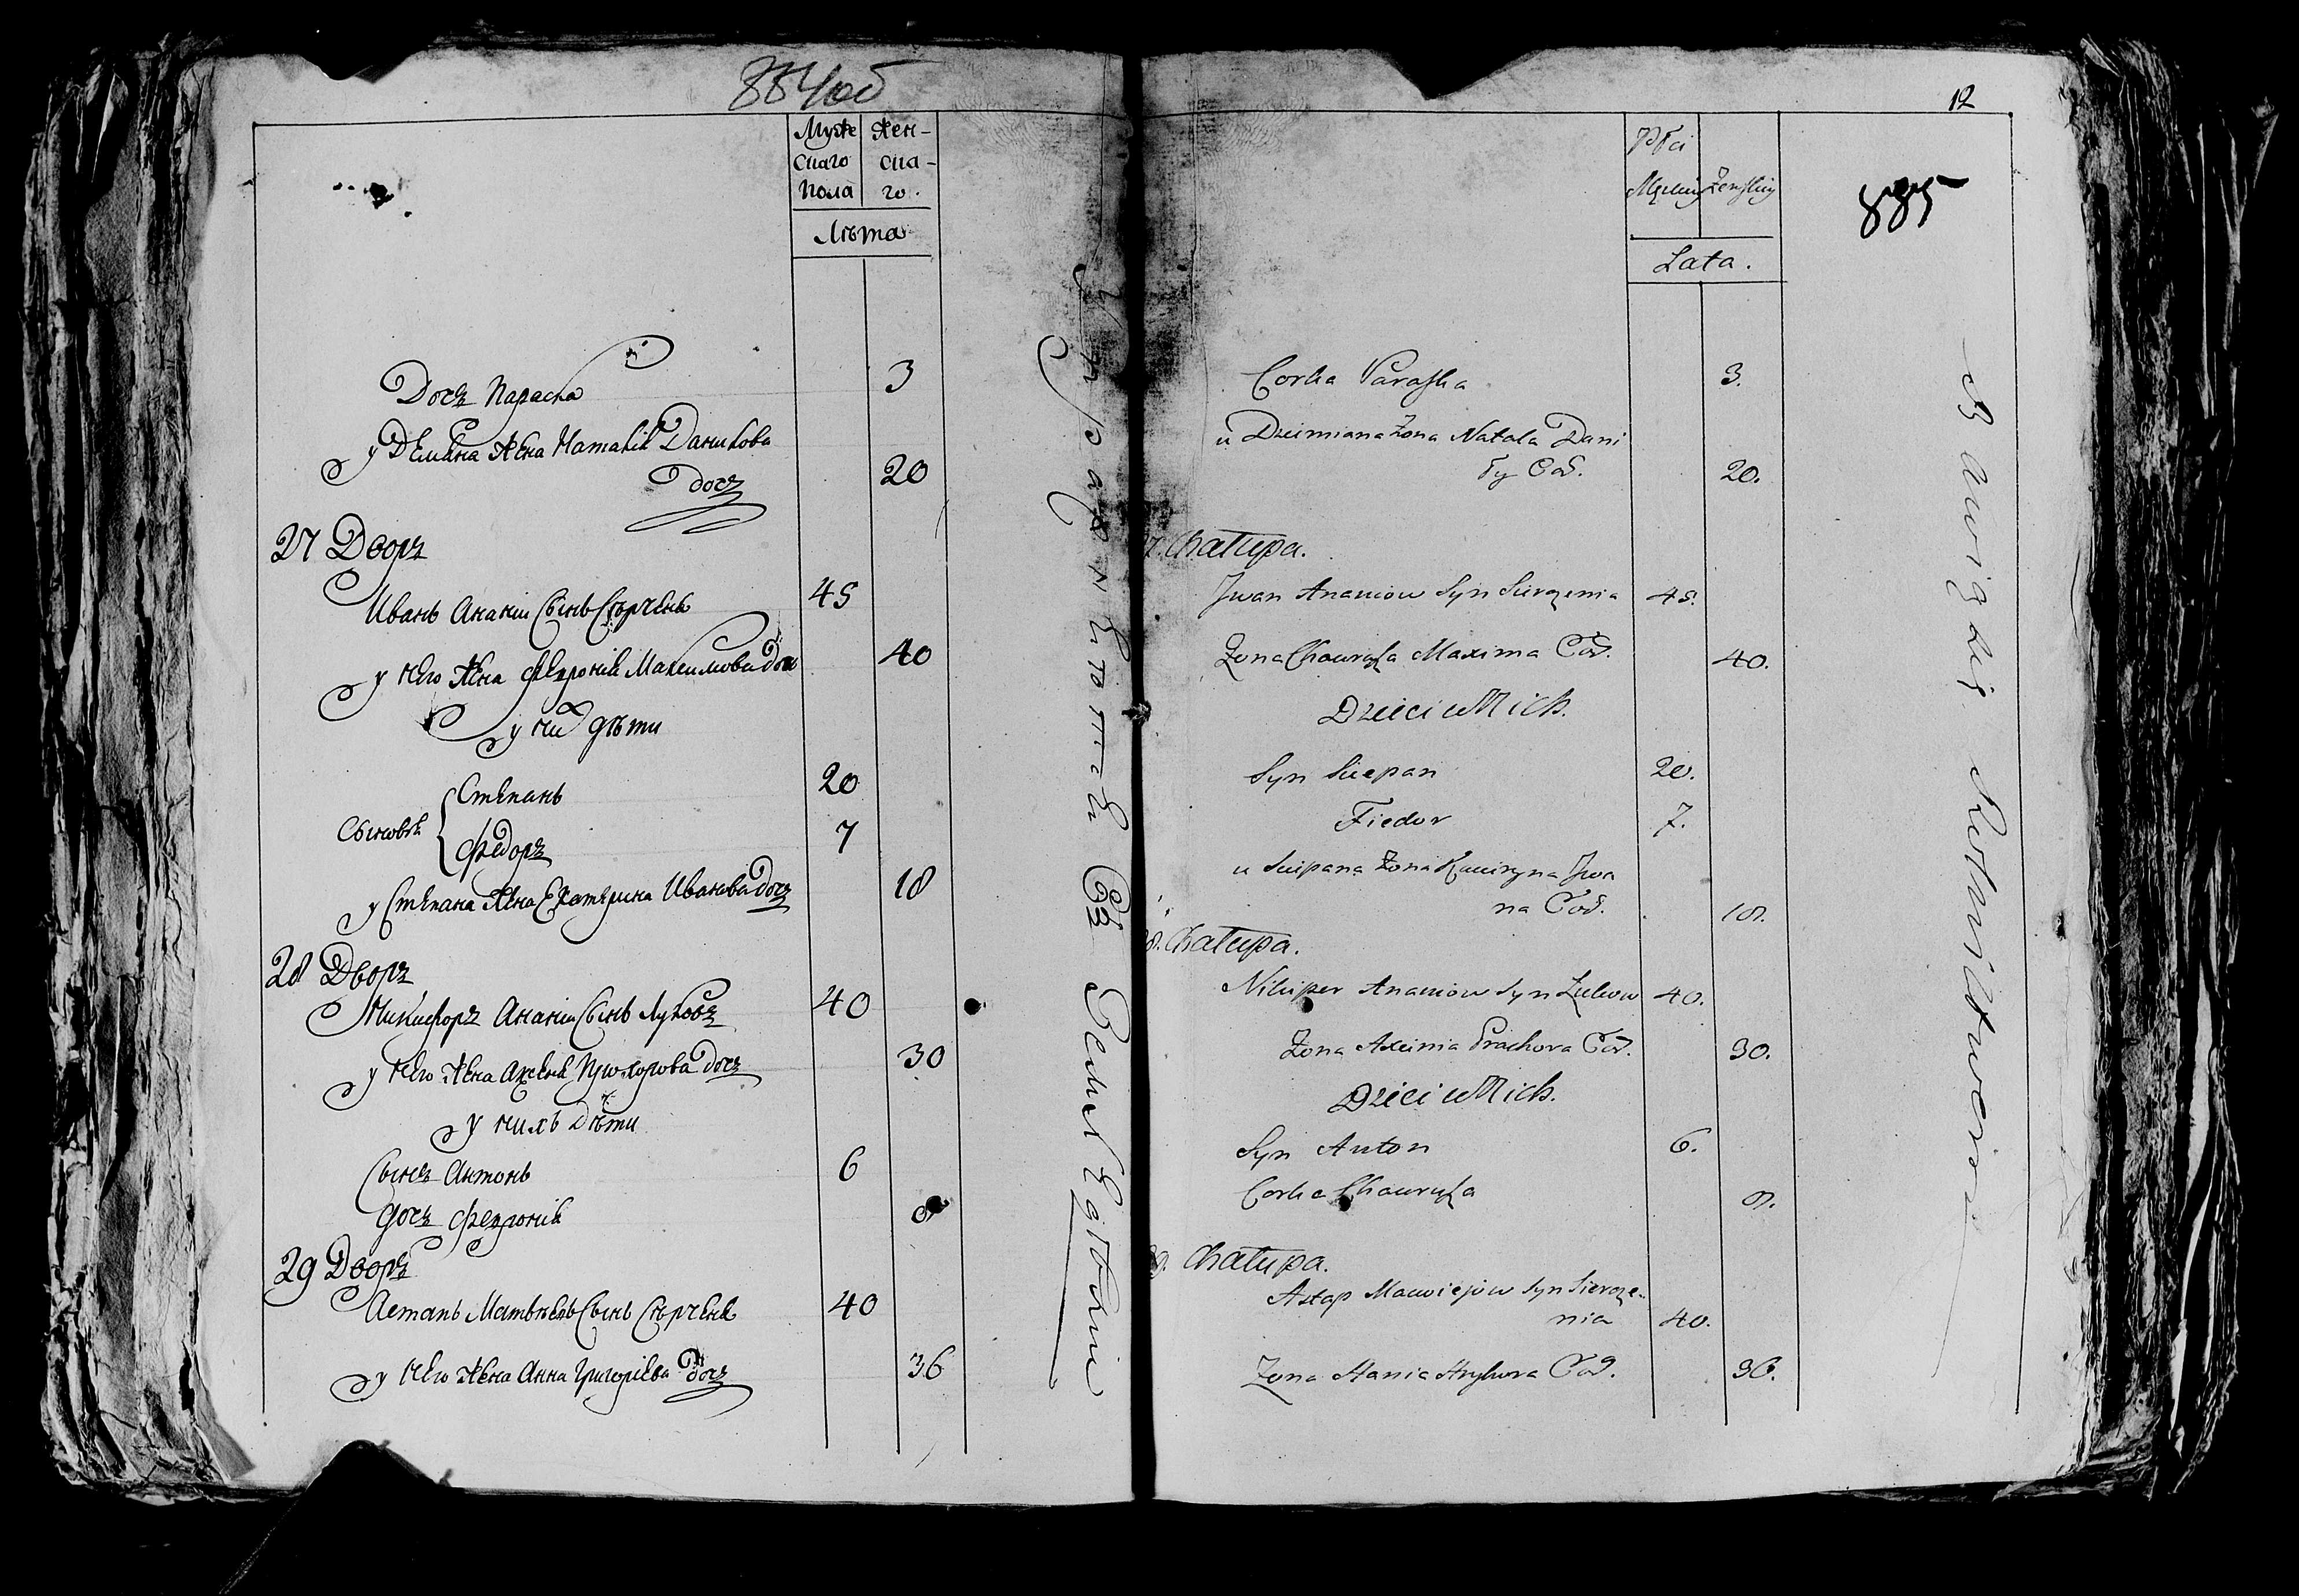 884об
Муже Жен-
скаго ска-
пола го.
Лѣта
Дочъ Параска 3
у Демяна жена Наталія Данилова
дочъ 20
27 Дворъ
Иванъ Ананіи Сынъ Сѣрченя 45
у него жена Февронія Максимова доч 40
у них дѣти
Сыновя Степанъ 20
Федоръ 7
у Степана жена Екатерина Иванова дочъ 18
28 Дворъ
Никифоръ Ананіи Сынъ Луковъ 40
у него жена Аксеня Прохорова дочъ 30
у нихъ Дѣти
Сынъ Антонъ 6
дочъ Февронія 8
29 Дворъ
Астапъ Матвѣевъ Сынъ Сѣрченя 40
у него жена Анна Григоріева Дочъ 36
12
885
Płci
Męzkiey Zenskiey
Lata.
Corka Paraska 3.
u Dziemiana Zona Natala Dani
ły Cor. 20.
7. Chałupa.
Jwan Ananiow Syn Sierczenia 45.
Zona Chaurusia Maxima Cor. 40.
Dzieci u Nich.
Syn Sciepan 20.
Fiedor 7.
u Sciepana Zona Kacirzyna Jwa
na Cor. 18.
8. Chałupa.
Nikiper Ananiow Syn Zukow 40.
Zona Axinia Prachora Cor. 30.
Dzieci u Nich.
Syn Anton 6.
Corka Chaurusia 8.
9. Chałupa.
Astap Maciejow Syn Siercze-
nia 40.
Zona Hania Hryhora Cor. 36.